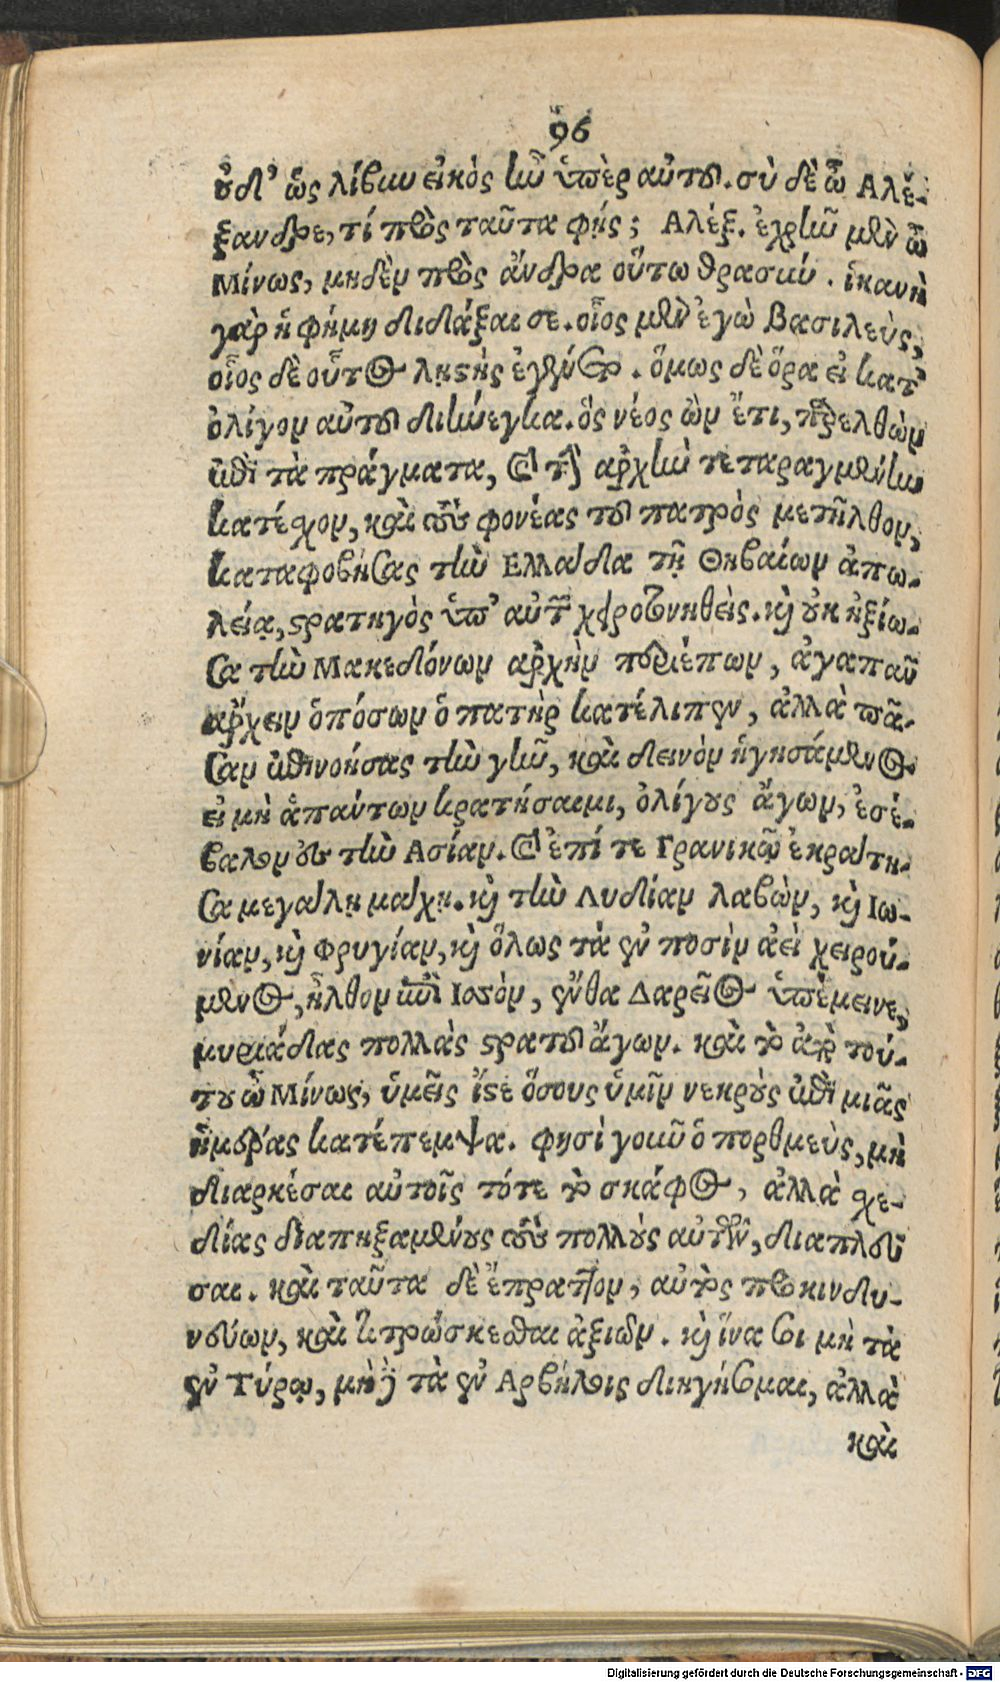 96
οὐδ' ὡς λίβυν εἰκὸς ἦν ὑπὲρ αὑτοῦ. σὺ δὲ ὦ Αλέ-
ξανδρε, τί πρὸς ταῦτα φῄς; Αλέξ. ἐχρῆν μὲν ὦ
Μίνως, μηδὲν πρὸς ἄνδρα οὕτω θρασύν. ἱκανὴ
γὰρ ἡ φήμη διδάξαι σε. οἷος μὲν ἐγὼ βασιλεὺς,
οἷος δὲ οὗτος λῃστὴς ἐγένετο. ὅμως δὲ ὅρα εἰ κατ'
ὀλίγον αὐτοῦ διήνεγκα. ὃς νέος ὢν ἔτι, παρελθὼν
ἐπὶ τὰ πράγματα, καὶ τὴν ἀρχὴν τεταραγμένην
κατέσχον, καὶ τοὺς φονέας τοῦ πατρὸς μετῆλθον,
καταφοβήσας τὴν Ελλάδα τῇ Θηβαίων ἀπω-
λείᾳ, στρατηγὸς ὑπ' αὐτῶν χειροτονηθείς. καὶ οὐκ ἠξίω-
σα τὴν Μακεδόνων ἀρχὴν περιέπων, ἀγαπᾶν
ἄρχειν ὁπόσων ὁ πατὴρ κατέλιπεν, ἀλλὰ πᾶ-
σαν ἐπινοήσας τὴν γῆν, καὶ δεινὸν ἡγησάμενος
εἰ μὴ ἁπάντων κρατήσαιμι, ὀλίγους ἄγων, ἐσέ-
βαλον εἰς τὴν Ασίαν. καὶ ἐπί τε Γρανικῷ ἐκράτη-
σα μεγάλῃ μάχῃ. καὶ τὴν Λυδίαν λαβὼν, καὶ Ιω-
νίαν, καὶ Φρυγίαν, καὶ ὅλως τὰ ἐν ποσὶν ἀεὶ χειρού-
μενος, ἦλθον ἐπὶ Ισσὸν, ἔνθα Δαρεῖος ὑπέμεινε,
μυριάδας πολλὰς στρατοῦ ἄγων. καὶ τὸ ἀπὸ τού-
του ὦ Μίνως, ὑμεῖς ἴστε ὅσους ὑμῖν νεκροὺς ἐπὶ μιᾶς
ἡμέρας κατέπεμψα. φησὶ γοῦν ὁ πορθμεὺς, μὴ
διαρκέσαι αὐτοῖς τότε τὸ σκάφος, ἀλλὰ σχε-
δίας διαπηξαμένους τοὺς πολλοὺς αὐτῶν, διαπλεῦ
σαι. καὶ ταῦτα δὲ ἔπραττον, αὐτὸς προκινδυ-
νεύων, καὶ τιτρώσκεσθαι ἀξιῶν. καὶ ἵνα σοι μὴ τὰ
ἐν Τύρῳ, μὴ δὲ τὰ ἐν Αρβήλοις διηγήσομαι, ἀλλὰ
καὶ
Digitalisierung gefördert durch die Deutsche Forschungsgemeinschaft - DFG